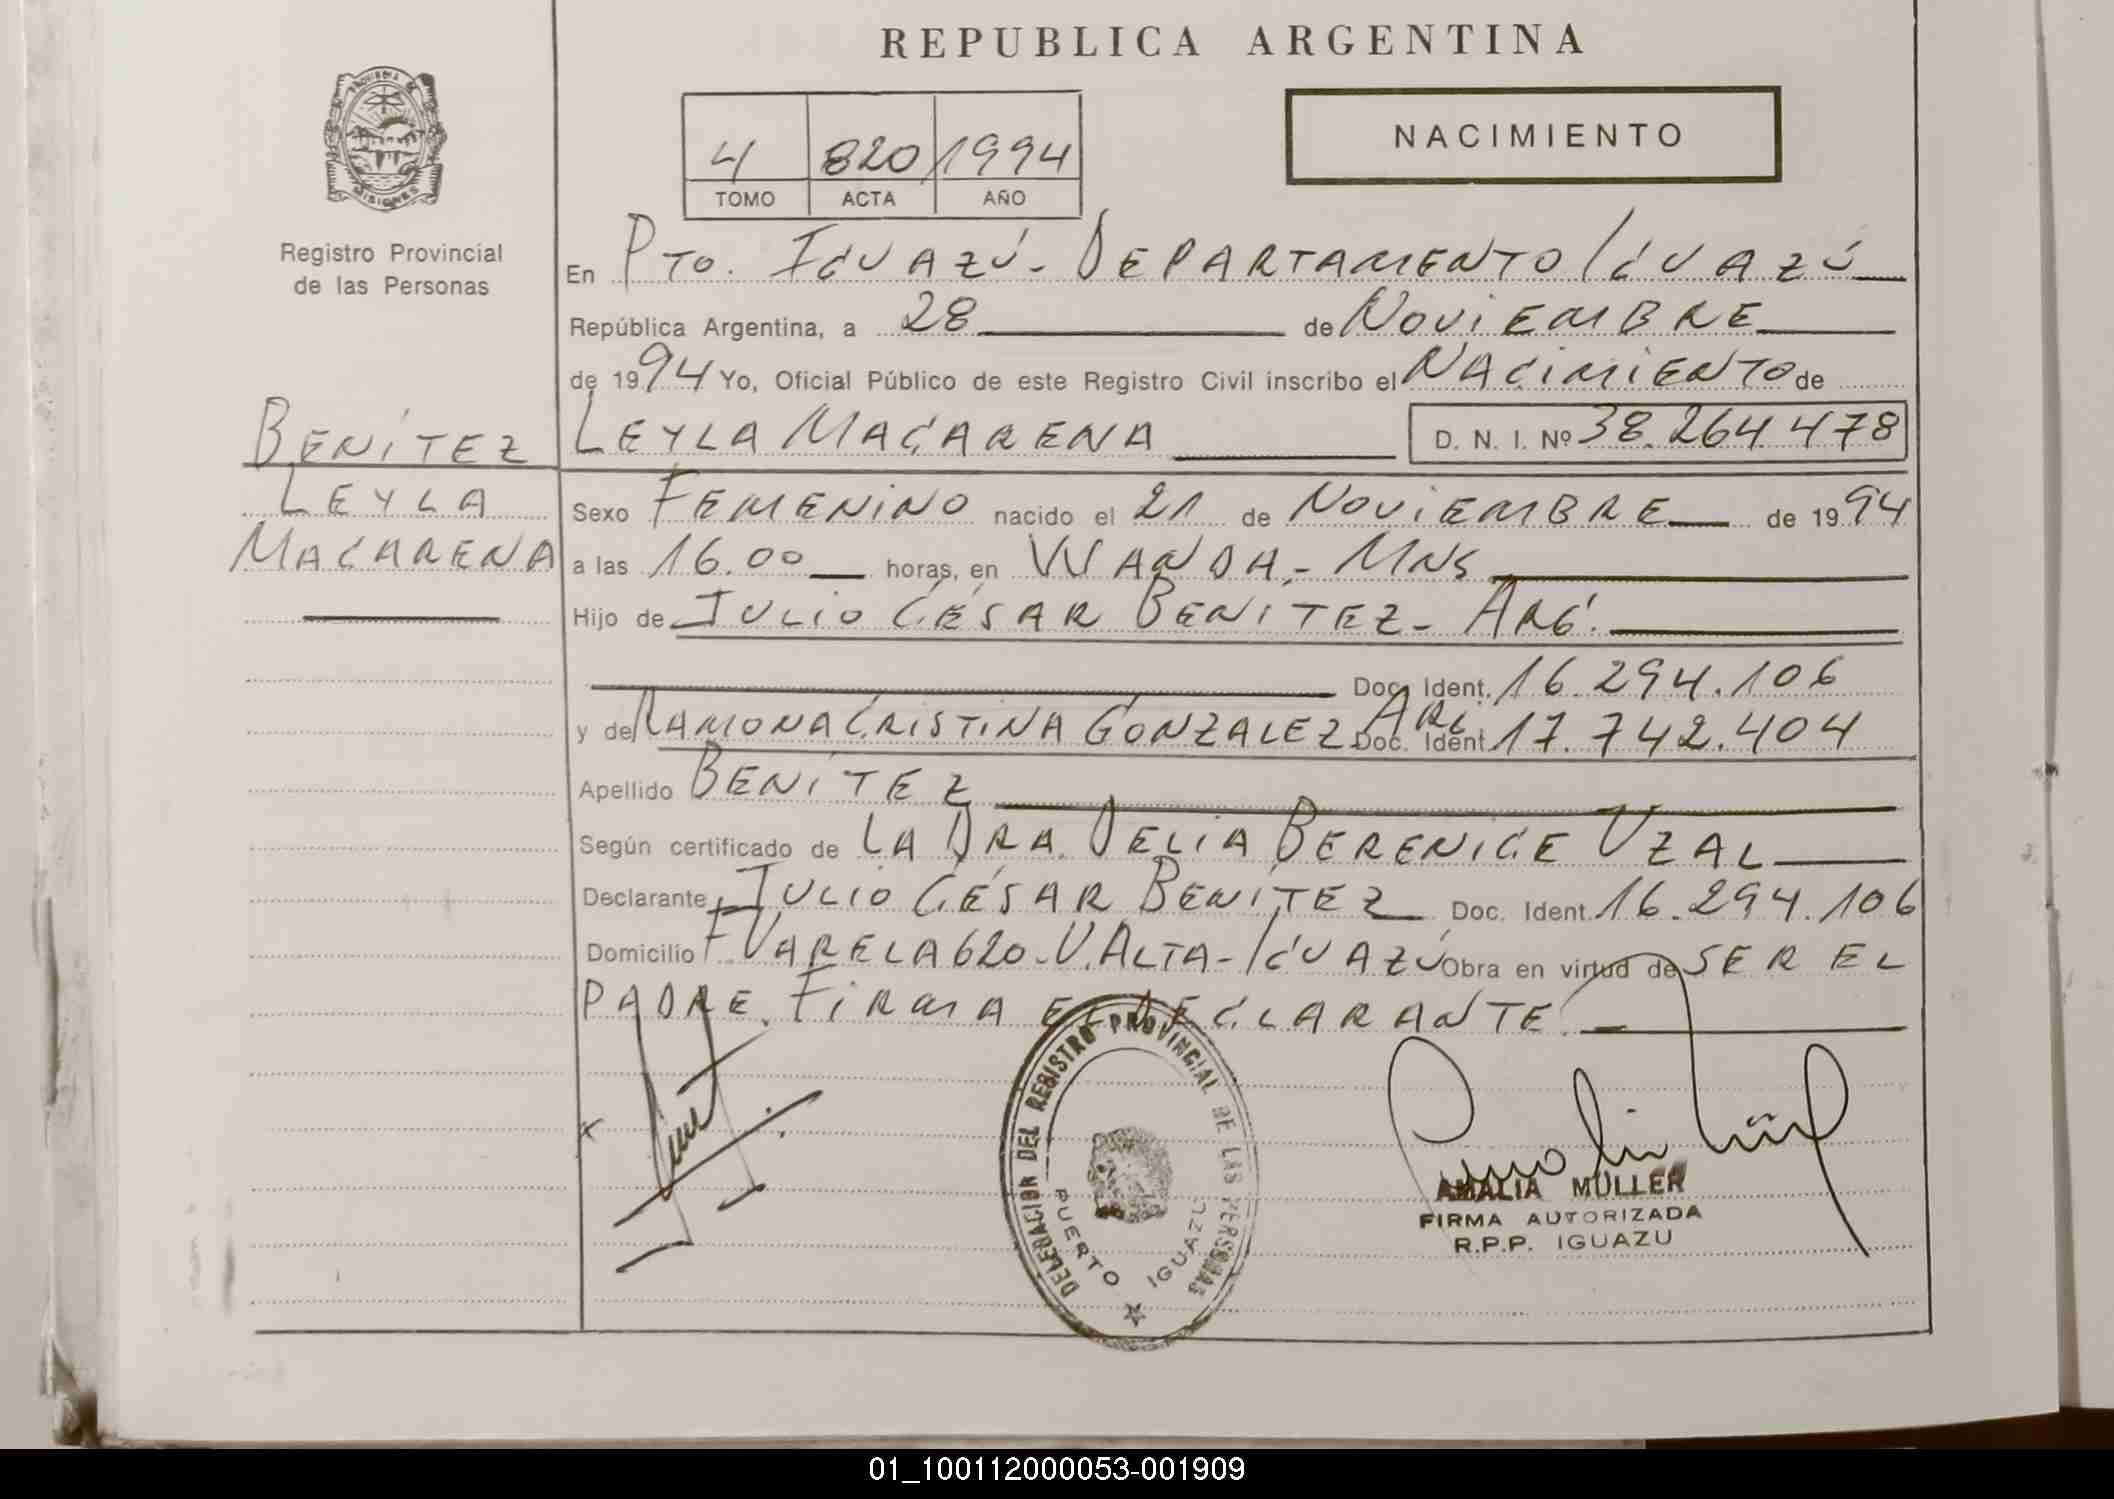 REPUBLICA ARGENTINA
PROVINCIA DE
MISIONES
Registro Provincial
de las Personas
4 820 1994
TOMO ACTA AÑO
NACIMIENTO
En PTO. IGUAZÚ - DEPARTAMENTO IGUAZÚ
República Argentina, a 28 de NOVIEMBRE
de 1994 Yo, Oficial Público de este Registro Civil inscribo el NACIMIENTO de
BENÍTEZ
LEYLA
MACARENA
LEYLA MACARENA D. N. I. Nº 38.264.478
Sexo FEMENINO nacido el 21 de NOVIEMBRE de 1994
a las 16.00 horas, en WANDA,- MNS
Hijo de JULIO CÉSAR BENÍTEZ - ARG.
Doc. Ident. 16.294.106
y de RAMONA CRISTINA GONZALEZ ARG Doc. Ident 17.742.404
Apellido BENÍTEZ
Según certificado de LA DRA. DELIA BERENICE UZAL
Declarante JULIO CÉSAR BENÍTEZ Doc. Ident. 16.294.106
Domicilio F. VARELA 620 - V. ALTA - IGUAZÚ Obra en virtud de SER EL
PADRE. FIRMA EL DECLARANTE.
DELEGACION DEL REGISTRO PROVINCIAL DE LAS PERSONAS
PUERTO IGUAZU
AMALIA MULLER
FIRMA AUTORIZADA
R.P.P. IGUAZU
01_100112000053-001909